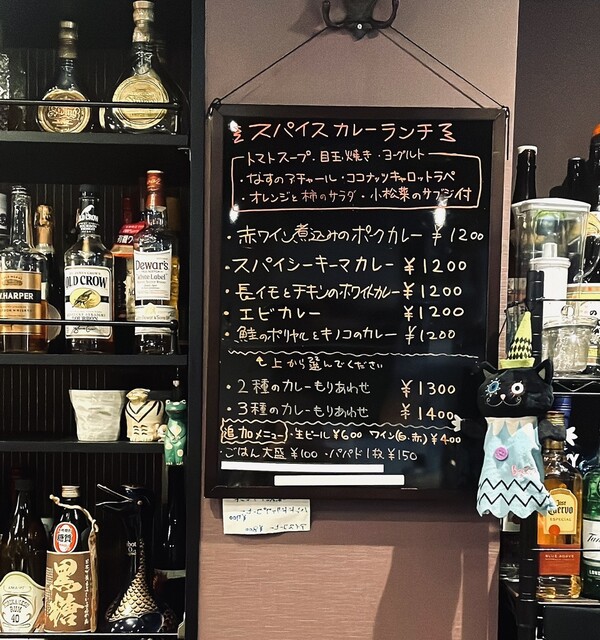 スパイスカレーランチ
トマトスープ・目玉焼き・ヨーグルト
・なすのアチャール・ココナッツキャロットラペ
・オレンジと柿のサラダ・小松菜のサブジ付
・赤ワイン煮込みのポークカレー ¥1200
・スパイシーキーマカレー ¥1200
・長イモとチキンのホワイトカレー ¥1200
・エビカレー ¥1200
・鮭のポリヤルとキノコのカレー ¥1200
上から選んでください
・2種のカレーもりあわせ ¥1300
・3種のカレーもりあわせ ¥1400
追加メニュー ・生ビール¥600 ワイン(白・赤)¥400
・ごはん大盛 ¥100 ・パパド1枚 ¥150
HARPER
OLD CROW
BOURBON
Dewar's
White Label
黒糖
40
Cuervo
ESPECIAL